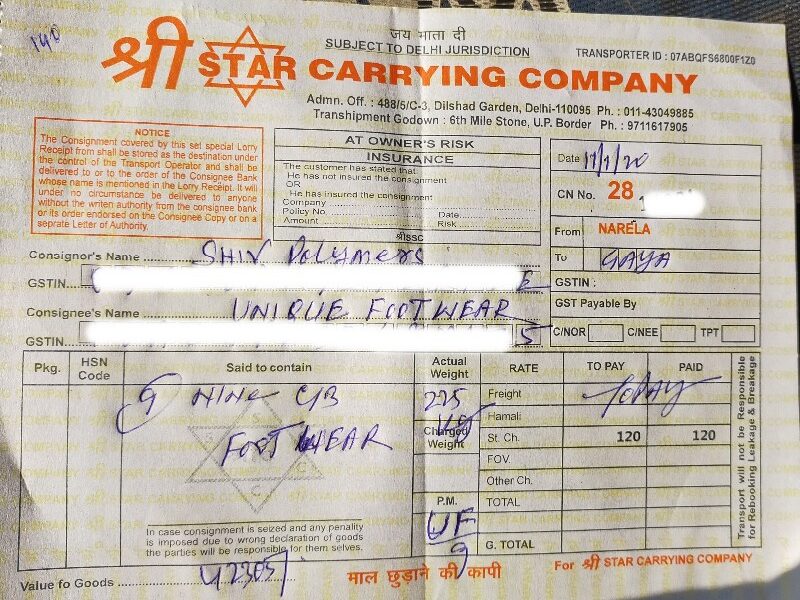 140
जय माता दी
SUBJECT TO DELHI JURISDICTION
TRANSPORTER ID : 07ABQFS6800F1Z0
श्री STAR CARRYING COMPANY
Admn. Off. : 488/5/C-3, Dilshad Garden, Delhi-110095 Ph. : 011-43049885
Transhipment Godown : 6th Mile Stone, U.P. Border Ph. : 9711617905
NOTICE
The Consignment covered by this set special Lorry
Receipt from shall be stored as the destination under
the control of the Transport Operator and shall be
delivered to or to the order of the Consignee Bank
whose name is mentioned in the Lorry Receipt. It will
under no circumstance be delivered to anyone
without the writen authority from the consignee bank
or its order endorsed on the Consignee Copy or on a
seprate Letter of Authority.
AT OWNER'S RISK
INSURANCE
The customer has stated that
He has not insured the consignment
OR
He has insured the consignment
Company
Policy No. Date
Amount Risk
श्रीSSC
Date /1/20
CN No. 28
From NARELA
To GAYA
GSTIN :
GST Payable By
C/NOR C/NEE TPT
Consignor's Name SHIV Polymers
GSTIN E
Consignee's Name UNIQUE FOOTWEAR
GSTIN 5
Pkg. HSN Code Said to contain Actual Weight RATE TO PAY PAID
9 NINE C/B
FOOTWEAR
225 Kg
Charged Weight
Freight ToPAY
Hamali
St. Ch. 120 120
FOV.
Other Ch.
P.M. TOTAL
UF
9
G. TOTAL
S S C
In case consignment is seized and any penality
is imposed due to wrong declaration of goods
the parties will be responsible for them selves.
Transport will not be Responsible
for Rebooking Leakage & Breakage
Value fo Goods 42305/
माल छुड़ाने की कापी
For श्री STAR CARRYING COMPANY